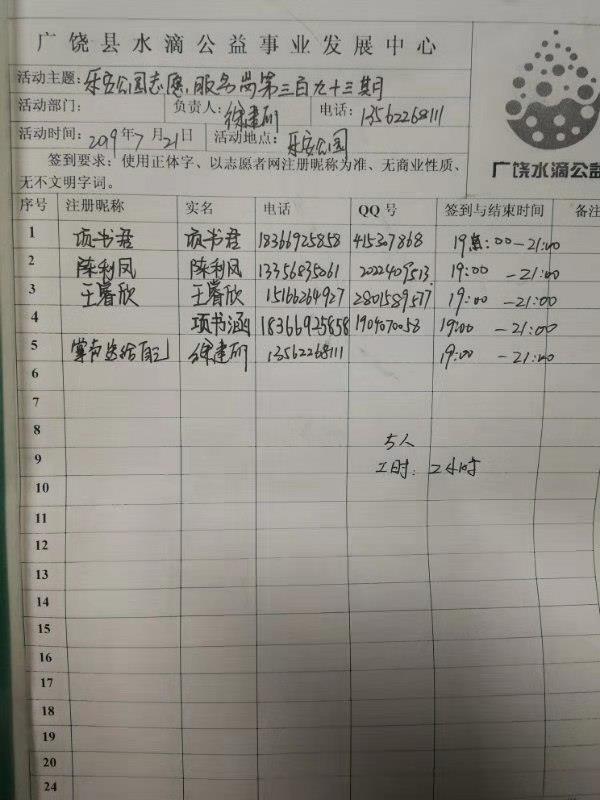 广饶县水滴公益事业发展中心
活动主题：乐安公园志愿服务岗第三百九十三期
活动部门： 负责人：徐建功 电话：13562268111
活动时间：2019年7月21日 活动地点：乐安公园
签到要求：使用正体字、以志愿者网注册昵称为准、无商业性质、
无不文明字词。
广饶水滴公益
序号 注册昵称 实名 电话 QQ号 签到与结束时间 备注
1 项书君 项书君 18366925858 415327868 19点:00-21:00
2 陈利凤 陈利凤 13356835261 2022409513 19:00 -21:00
3 王睿欣 王睿欣 15166264927 2801589577 19:00 -21:00
4 项书涵 18366925858 1909070058 19:00 -21:00
5 掌声送给自己 13562268111 19:00 -21:00
6
7
8
5人
9
工时：2小时
10
11
12
13
14
15
16
17
18
19
20
24